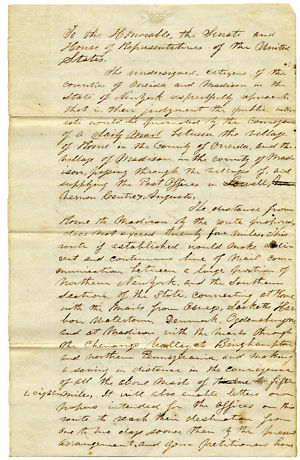 To the Honorable, the Senate and
House of Representatives of the United
States.
The undersigned, citizens of the
counties of Oneida and Madison in the
State of New York respectfully represent
that in their judgment the public inter
ests would be promoted by the conveyance
of a daily Mail between the village
of Rome in the County of Oneida, and the
village of Madison in the county of Madi
son, passing through the villages of, and
supplying the Post Offices in Lowell,
Vernon Centre, Augusta,
The distance from
Rome to Madison by the route proposed
does not exceed twenty four miles. This
route if established would make a direct
and continuous line of Mail com
munication between a large portion of
Northern New York, and the Southern
section of the State, connecting at Rome
with the Mails from Oswego, Sackets Har
bor, Watertown, Denmark, Ogdensburgh
and at Madison with the mails through
the Chenango Valley, at Binghampton
and northern Pennsylvania and making
a saving in distance in the conveyance
of all the above Mails of fifteen
miles. It will also enable letters and
papers intended for the offices on this
route to reach their destination from
one to two days sooner than by the present
arrangement, and your petitioners have